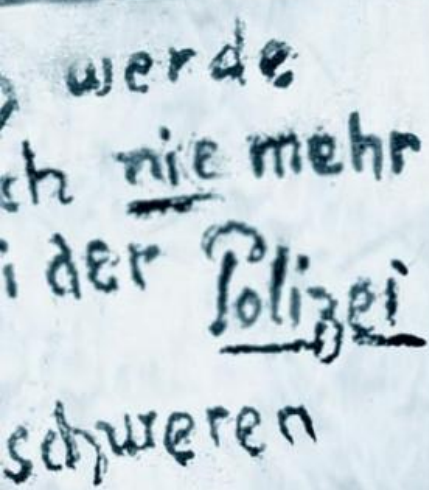 werde
ch nie mehr
i der Polizei
schweren